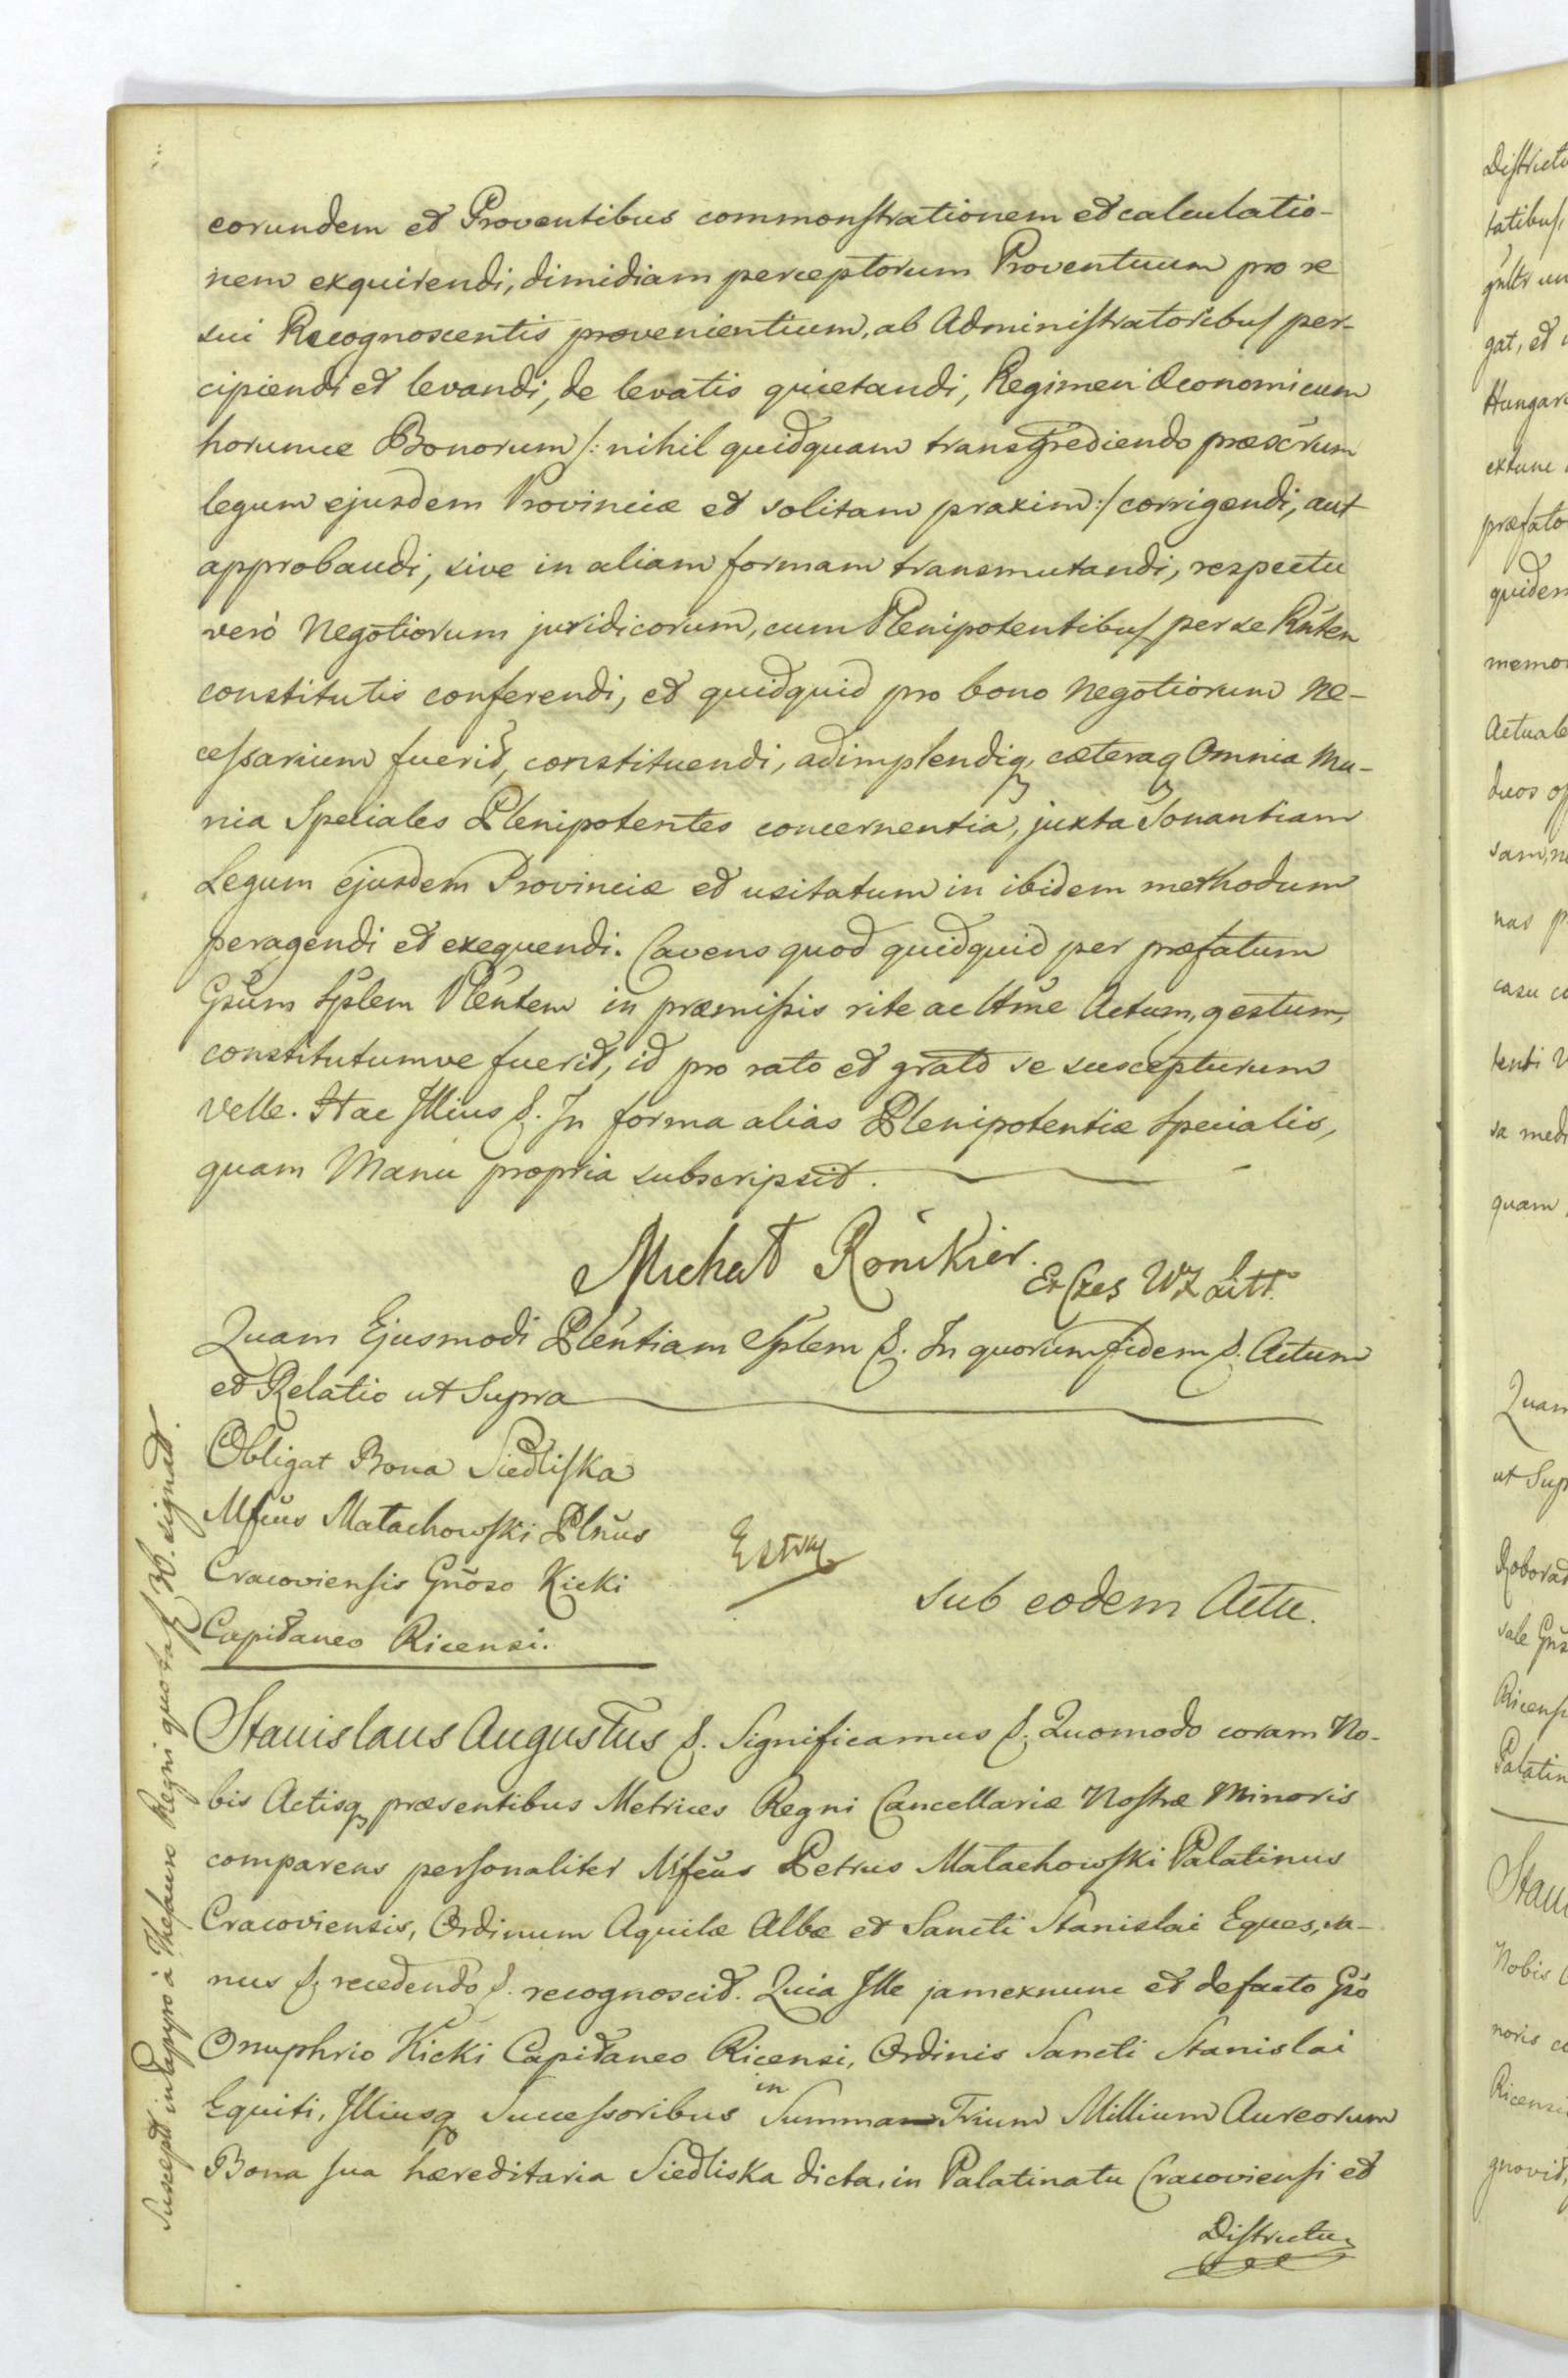 eorundem et Proventibus commonstrationem et calculatio-
nem exquirendi, dimidiam perceptorum Proventuum pro se
sui Recognoscentis provenientium, ab Administratoribus per-
cipiendi et levandi, de levatis quietandi, Regimen Œconomicum
horumce Bonorum /: nihil quidquam transgrediendo præscrum
legum ejusdem Provinciæ et solitam praxim :/ corrigendi, aut
approbandi, sive in aliam formam transmutandi, respectu
verò Negotiorum juridicorum, cum Plenipotentibus per se Rnten
constitutis conferendi, et quidquid pro bono Negotiorum Ne-
cessarium fuerit, constituendi, adimplendiq, cæteraq Omnia Mu-
nia Speciales Plenipotentes concernentia, juxta Sonantiam
Legum ejusdem Provinciæ et usitatum in ibidem methodum
peragendi et exequendi. Cavens quod quidquid per præfatum
Gsum Splem Plentem in præmissis rite ac ltme Actum, gestum,
constitutumve fuerit, id pro rato et grato se suscepturum
velle. Hac Illius &. In forma alias Plenipotentiæ Specialis,
quam Manu propria subscripsit.
Michał Ronikier. Ex Czes WX Litt
Quam Ejusmodi Plentiam Splem &. In quorum fidem &. Actum
et Relatio ut Supra
Obligat Bona Siedliska
Mfcus Małachowski Plnus
Cracoviensis Gnoso Kicki
Capitaneo Ricensi.
Extrad
Sub eodem Actu.
Stanislaus Augustus &. Significamus &. Quomodo coram No-
bis Actisq præsentibus Metrices Regni Cancellariæ Nostræ Minoris
comparens personaliter Mfcus Petrus Małachowski Palatinus
Cracoviensis, Ordinum Aquilæ Albæ et Sancti Stanislai Eques, sa-
nus &. recedendo &. recognoscit. Quia Ille jamexnunc et defacto Gso
Onuphrio Kicki Capitaneo Ricensi, Ordinis Sancti Stanislai
Equiti, Illiusq Successoribus in Summa Trium Millium Aureorum
Bona sua hæreditaria Siedliska dicta, in Palatinatu Cracoviensi et
Districtu
Suscept in Papyro à Thesauro Regni quotas 30. signat.
Districtu
tatibus,
gat, et
Hungar
extunc
præfato
quidem
memor
Actuale
duos
sam, n
nas p
casu
tenti
sa med
quam
Quam
ut Sup
Roborat
Ricens
Palatin
Stan
Nobis
noris
Ricens
gnovit,